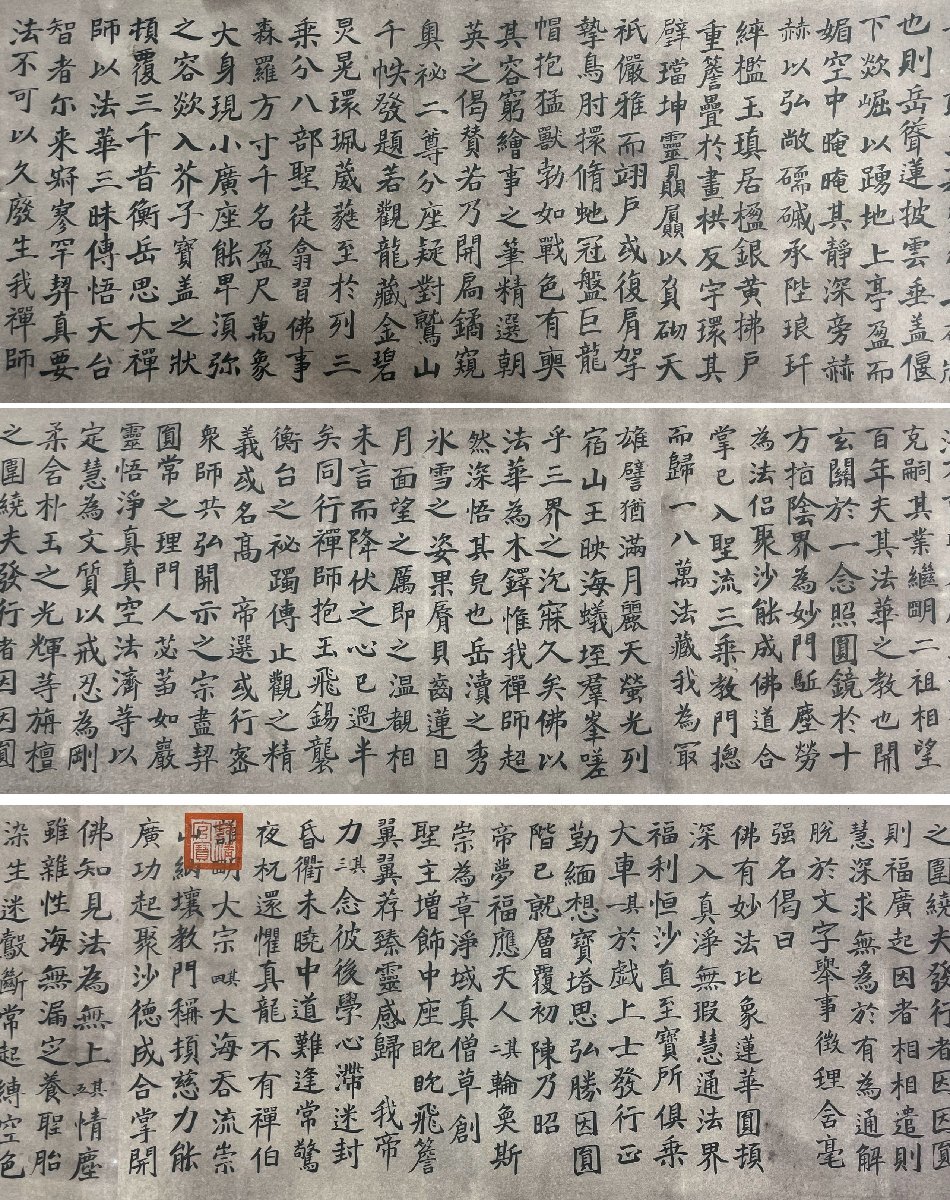 也則岳聳蓮披雲垂盖偃
下欻崛以踴地上亭盈而
媚空中晻晻其靜深旁赫
赫以弘敞礝磩承陛琅玕
綷檻玉瑱居楹銀黄拂户
重簷疊於畫栱反宇環其
璧璫坤靈贔屭以負砌天
祇儼雅而翊户或復肩挐
摯鳥肘擐脩虵冠盤巨龍
帽抱猛獸勃如戰色有奰
其容窮繪事之筆精選朝
英之偈賛若乃開扃鐍窺
奥祕二尊分座疑對鷲山
千帙發題若觀龍藏金碧
炅晃環珮葳蕤至於列三
乘分八部聖徒翕習佛事
森羅方寸千名盈尺萬象
大身現小廣座能卑須弥
之容欻入芥子寶盖之狀
頓覆三千昔衡岳思大禪
師以法華三昧傳悟天台
智者尔来寂寥罕契真要
法不可以久廢生我禪師
克嗣其業繼明二祖相望
百年夫其法華之教也開
玄關於一念照圓鏡於十
方指陰界為妙門駈塵勞
為法侣聚沙能成佛道合
掌已入聖流三乘教門揔
而歸一八萬法藏我為冣
雄譬猶滿月麗天螢光列
宿山王映海蟻垤羣峯嗟
乎三界之沉寐久矣佛以
法華為木鐸惟我禪師超
然深悟其皃也岳瀆之秀
氷雪之姿果脣貝齒蓮目
月面望之厲即之温覩相
未言而降伏之心已過半
矣同行禪師抱玉飛錫襲
衡台之祕躅傳止觀之精
義或名高 帝選或行密
衆師共弘開示之宗盡契
圓常之理門人苾芻如巖
靈悟淨真真空法濟等以
定慧為文質以戒忍為剛
柔含朴玉之光輝等旃檀
之圍繞夫發行者因圓
之圍繞夫發行者因因圓
則福廣起因者相相遣則
慧深求無為於有為通解
脫於文字舉事徵理含毫
强名偈曰
佛有妙法比象蓮華圓頓
深入真淨無瑕慧通法界
福利恒沙直至寶所俱乘
大車其一於戲上士發行正
勤緬想寶塔思弘勝因圓
階已就層覆初陳乃昭
帝夢福應天人其二輪奐斯
崇為章淨域真僧草創
聖主增飾中座眈眈飛簷
翼翼荐臻靈感歸 我帝
力其三念彼後學心滯迷封
昏衢未曉中道難逢常驚
夜枙還懼真龍不有禪伯
誰明大宗其四大海吞流崇
山納壤教門稱頓慈力能
廣功起聚沙德成合掌開
佛知見法為無上其五情塵
雖雜性海無漏定養聖胎
染生迷鷇斷常起縛空色